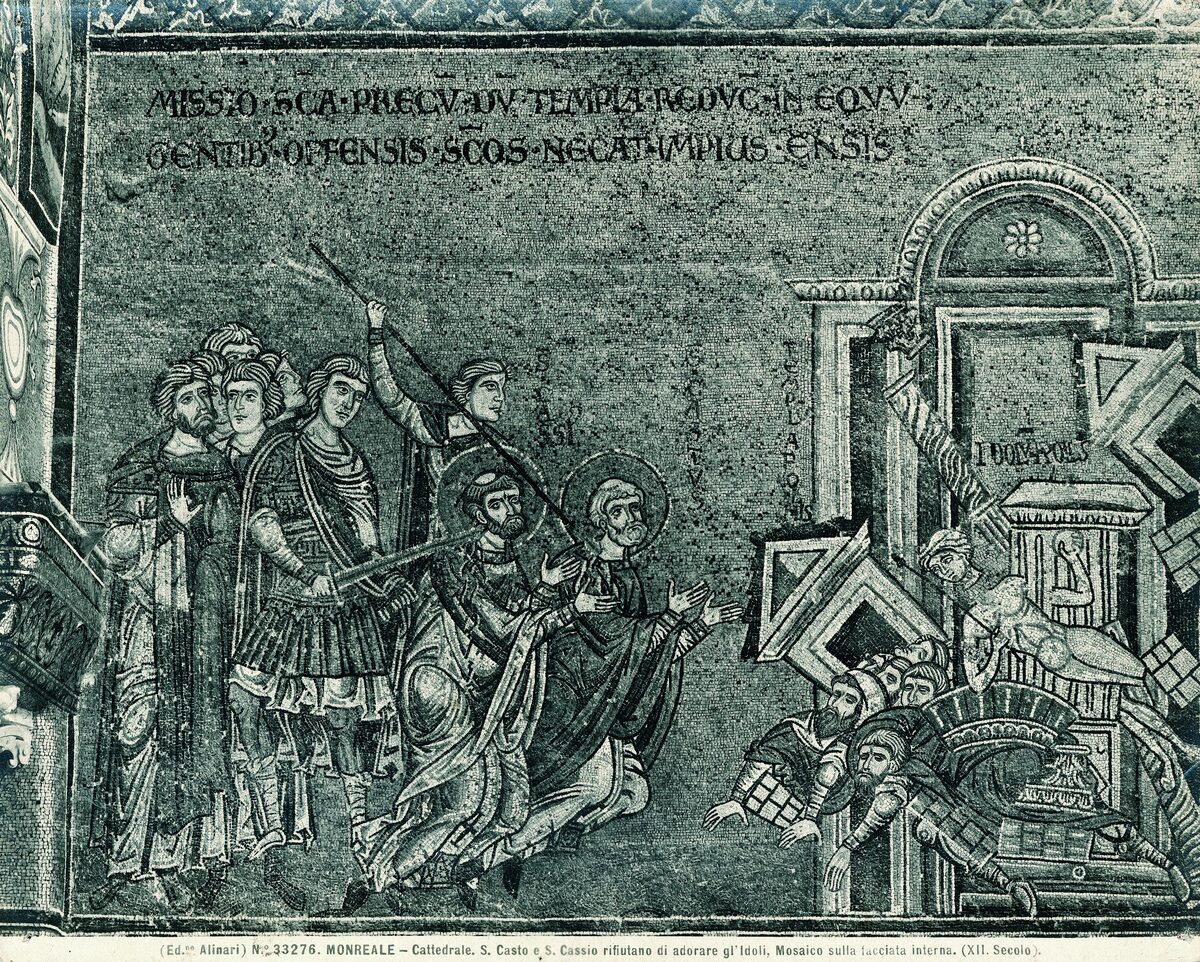 MISSIO · SCA · PRECV · DV · TEMPLA · REDVC · IN EQVV
GENTIB' · OFFENSIS · SCOS · NECAT · IMPIUS · ENSIS
CASSI
S CASTVS
TEMPLV APOLINIS
(Ed.ne Alinari) N.o 33276. MONREALE – Cattedrale. S. Casto e S. Cassio rifiutano di adorare gl'Idoli, Mosaico sulla facciata interna. (XII. Secolo).